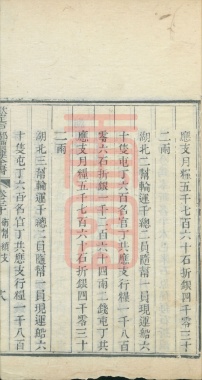 應支月糧五千七百六十石折銀四千零三十
二兩
湖北二幫輪運千總二員隨幫一員現運船六
十隻屯丁六百名官丁共應支行糧一千八百
零六石折銀一千二百六十四兩二錢屯丁共
應支月糧五千七百六十石折銀四千零三十
二兩
湖北三幫輪運千總二員隨幫一員現運船六
十隻屯丁六百名官丁共應支行糧一千八百